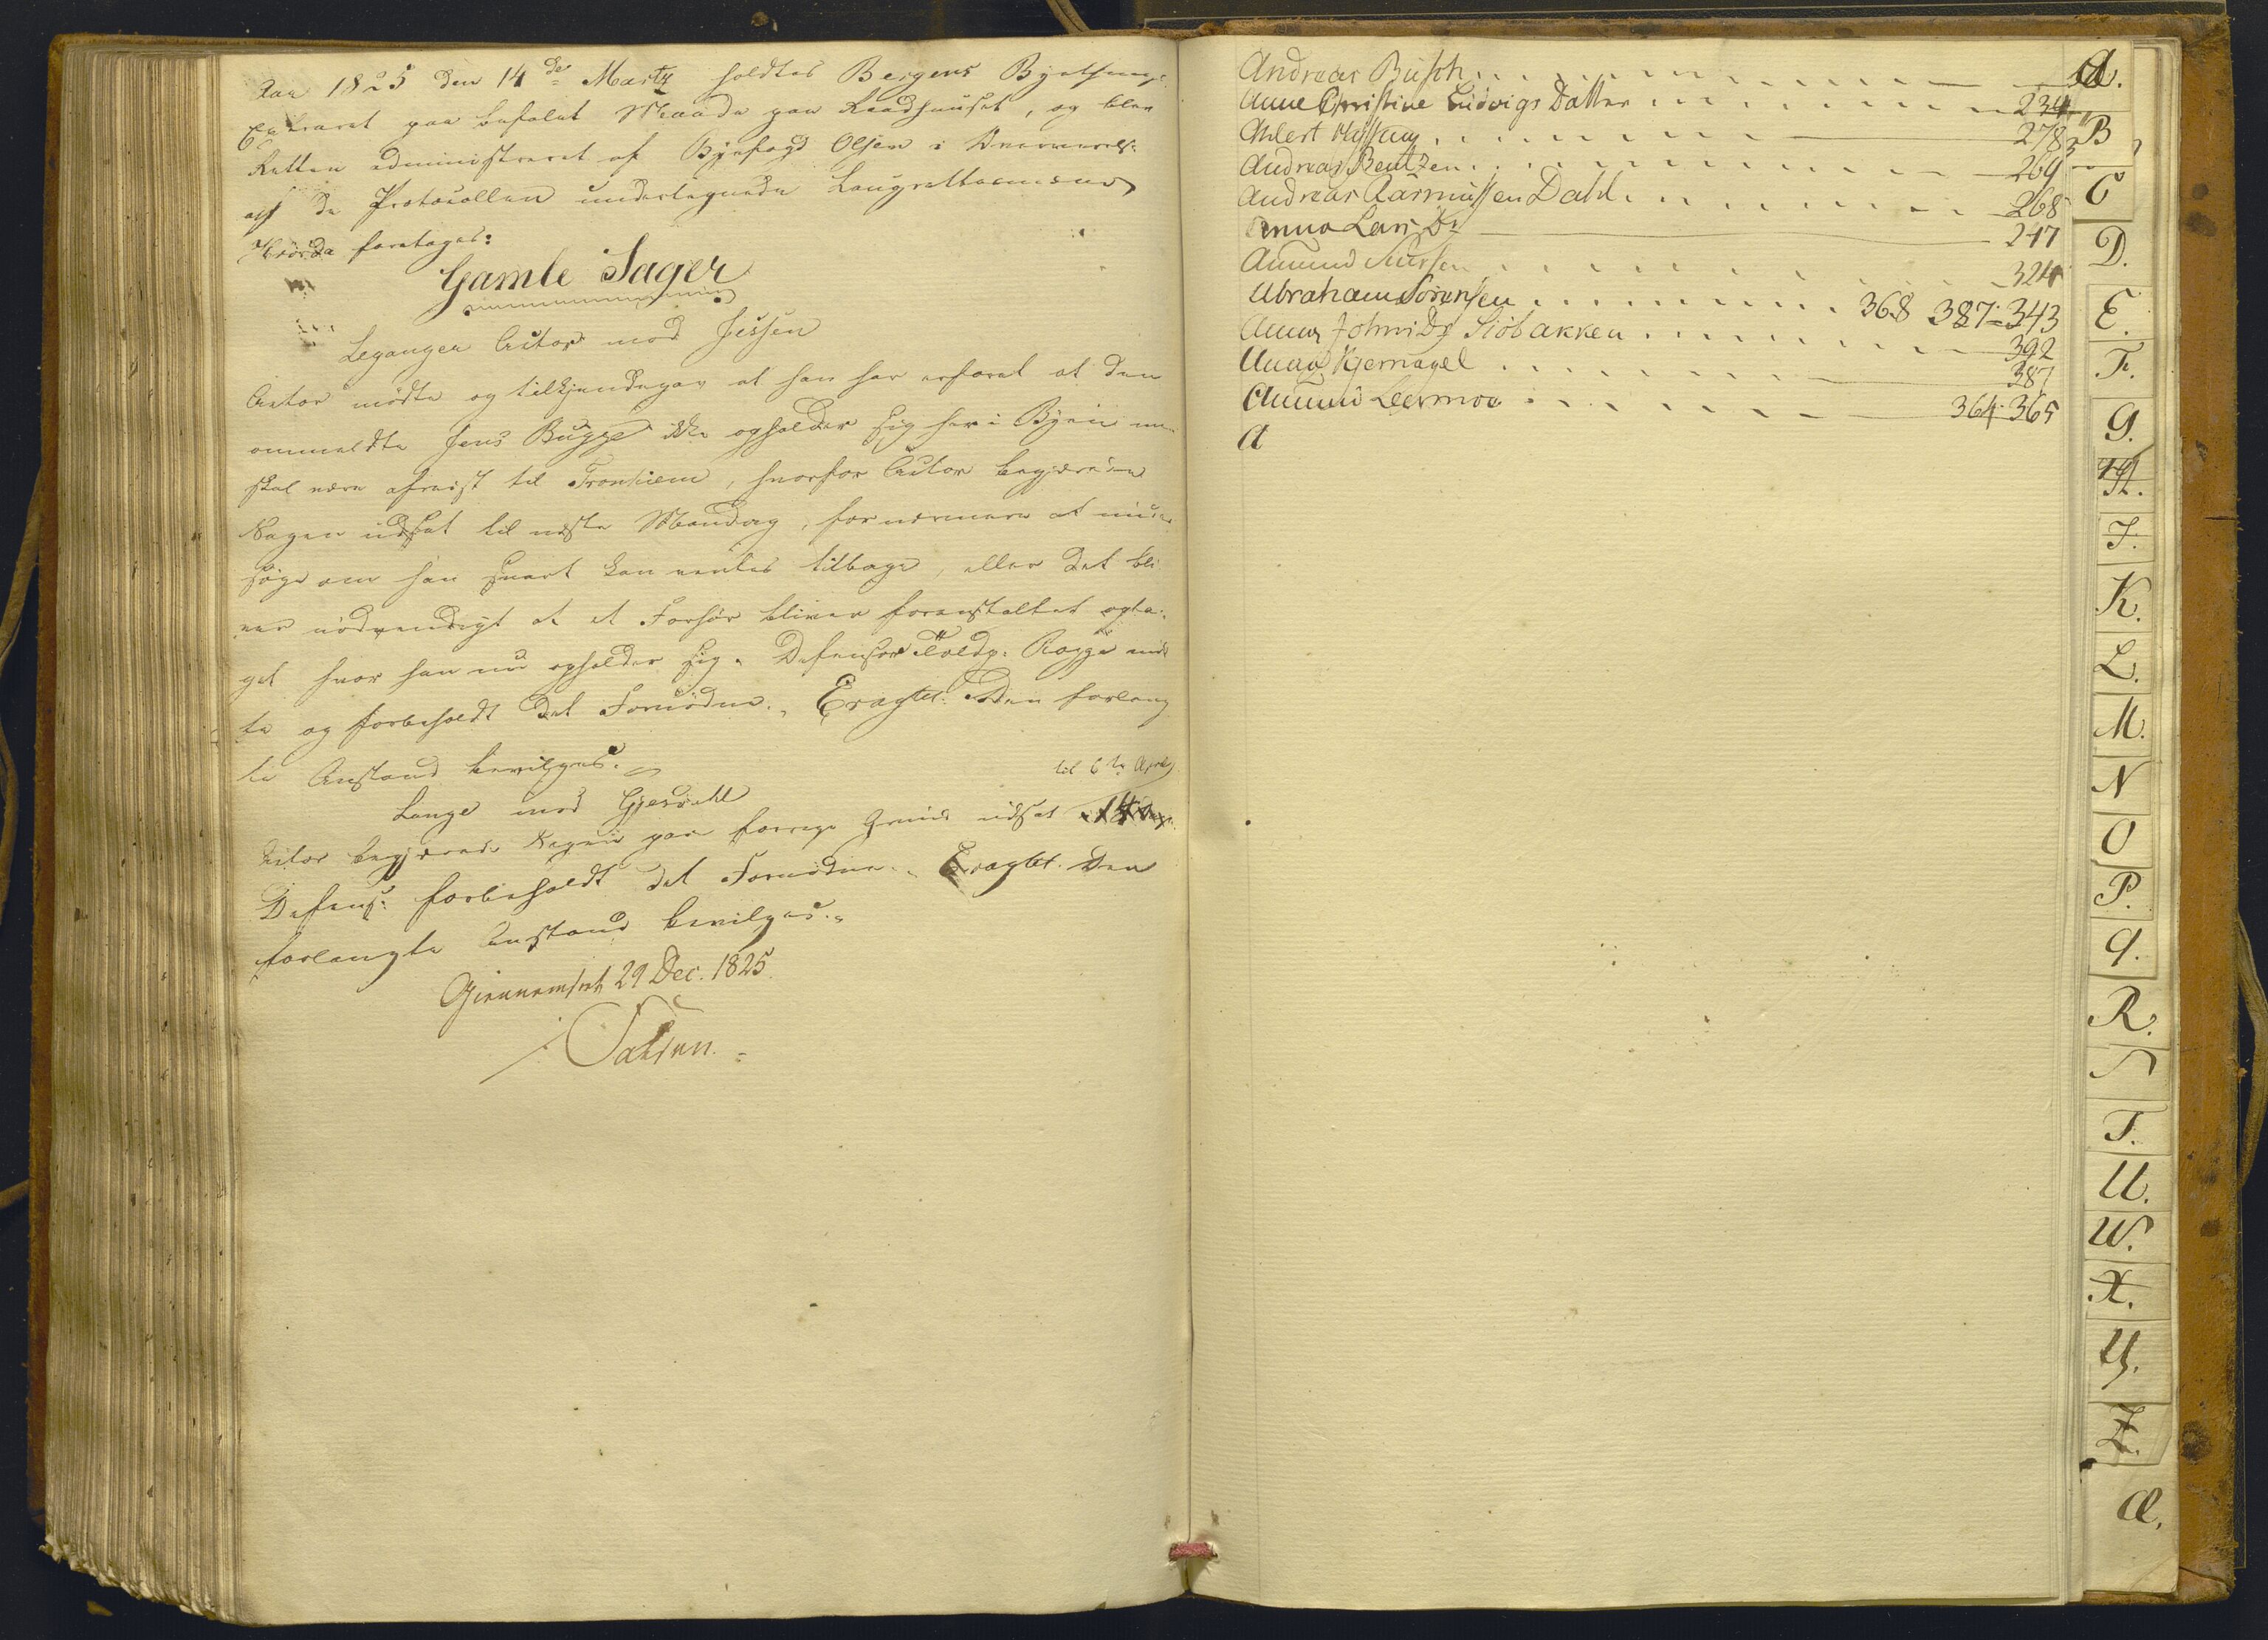 Aar 1825 den 14de Martz holdtes Bergens Byethings
Extraret paa befalet Maade paa Raadhuuset, og blev
Retten administreret af Byefogd Olsen i Overværelse
af de Protocollen undertegnede Laugrettesmænd
Hvorda foretoges:
Gamle Sager
Leganger Actor mod Jessen
Actor mødte og tilkjendegav at han har erfaret at den
ommeldte Jens Bugge ikke opholder sig her i Byen men
skal være afreist til Tronhiem, hvorfor Actor begjærede
Sagen udsat til næste Mandag, for nærmere at under
søge om han snart kan ventes tilbage, eller det bli
ver nødvendigt at et Forhør bliver foranstaltet opta-
get hvor han nu opholder sig. Defensor Toldp: Rogge mød
te og forbeholdt det Fornødne. Eragtet: Den forlang
te Anstand bevilges.
Lange mod Gjesdahl
til 6te April
Actor begjærede Sagen paa forrige Grund udsat 14 Dage
Defens: forbeholdt det Fornødne. Eragtet. Den
forlangte Anstand bevilges.
Giennemseet 29 Dec. 1825.
Andreas Busch
Anne Christine Ludvigs Datter 234
Ahlert 278
Andreas Bentzen 269
Andreas Rasmussen Dahl 268
Anna Lars Dr 247
Amund 324
Abraham Sørensen 368 387 343
Anna Johns Dr Siöbakken 392
Anna Kjernagel 387
Amund Leermoe 364 365
A
A.
B
C
D.
E.
F.
G.
H.
J.
K.
L.
M.
N
O
P.
q.
R.
S
T.
U.
W.
X.
Y.
Z.
Æ.